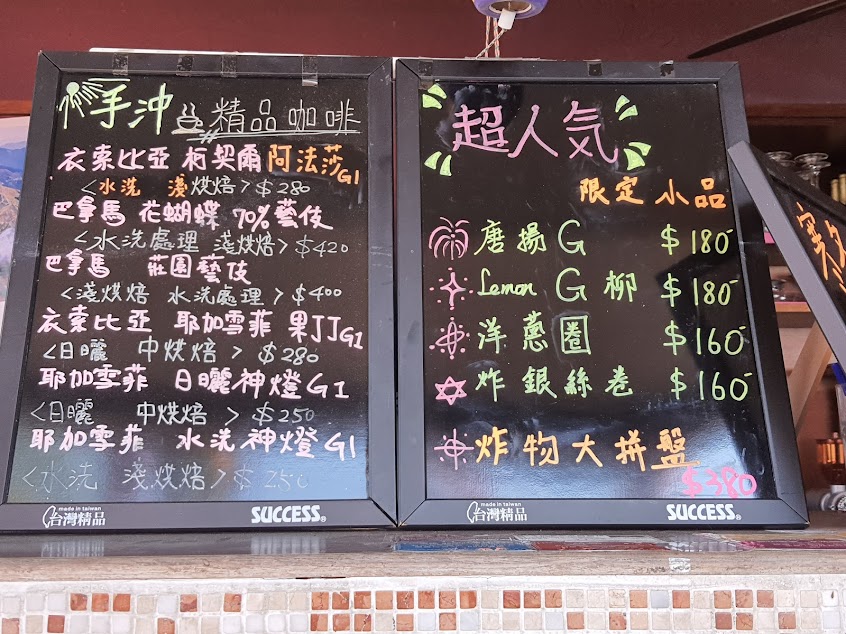 手沖 精品咖啡
衣索比亞 柯契爾 阿法莎G1
<水洗 淺烘焙>$280
巴拿馬 花蝴蝶 70%藝伎
<水洗處理 淺烘焙>$420
巴拿馬 莊園藝伎
<淺烘焙 水洗處理>$400
衣索比亞 耶加雪菲 果丁丁G1
<日曬 中烘焙> $280
耶加雪菲 日曬神燈G1
<日曬 中烘焙>$250
耶加雪菲 水洗神燈G1
<水洗 淺烘焙>$250
made in taiwan
台灣精品
SUCCESS®
超人氣
限定小品
唐揚G $180
Lemon G柳 $180
洋蔥圈 $160
炸銀絲卷 $160
炸物大拼盤
$380
made in taiwan
台灣精品
SUCCESS®